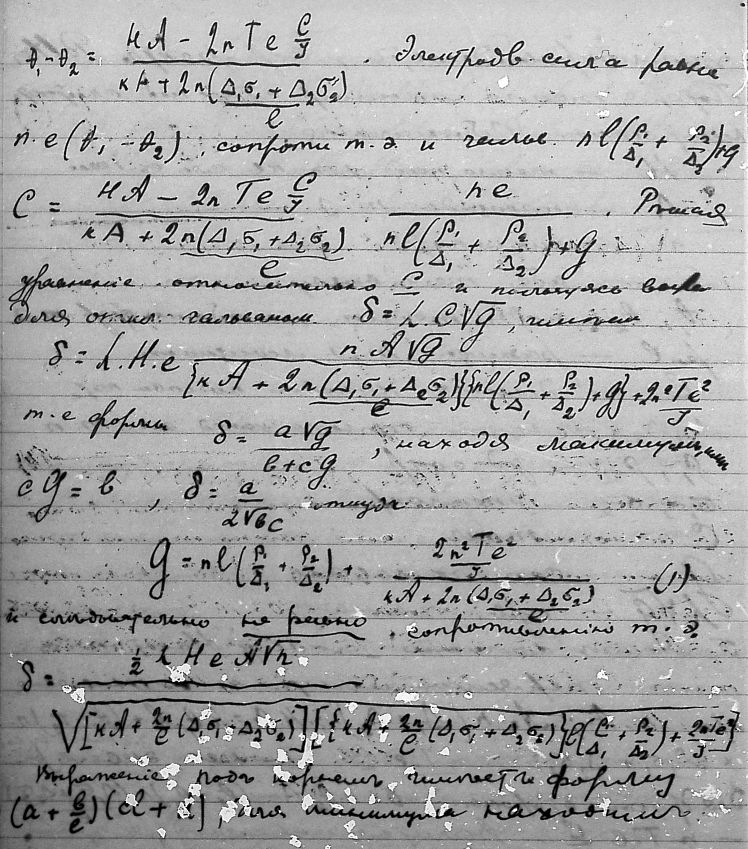 θ₁-θ₂ = (HA - 2n Te C/J) / (кA + 2n(Δ₁σ₁ + Δ₂σ₂)/l) . Электродв сила равна
n.e(θ₁-θ₂), сопроти т.э. и гальв. nl(ρ₁/Δ₁ + ρ₂/Δ₂)+G
C = (HA - 2n Te C/J) / (кA + 2n(Δ₁σ₁+Δ₂σ₂)/l) ne / (nl(ρ₁/Δ₁ + ρ₂/Δ₂)+G) . Решая
уравнение относительно C и
для откл. гальваном. δ = L.C√g,
δ = L.H.e n A√g / ({кA + 2n(Δ₁σ₁+Δ₂σ₂)/l}{nl(ρ₁/Δ₁+ρ₂/Δ₂)+g}+2n²Te²/J)
т.е формы δ = a√g / (b+cg) , находя максимум,
cG = b , δ = a / (2√bc) откуда
G = nl(ρ₁/Δ₁ + ρ₂/Δ₂) + (2n²Te²/J) / (кA + 2n(Δ₁σ₁ + Δ₂σ₂)/l) (1)
и следовательно не равно сопротивлению т.э.
δ = ½ L H e A√n / √([кA + 2n/l (Δ₁σ₁+Δ₂σ₂)][{кA + 2n/l (Δ₁σ₁+Δ₂σ₂)}l(ρ₁/Δ₁ + ρ₂/Δ₂) + 2nTe²/J])
Выражение подъ корнемъ имеетъ форму
(a + b/l)(cl + d), для минимума находимъ